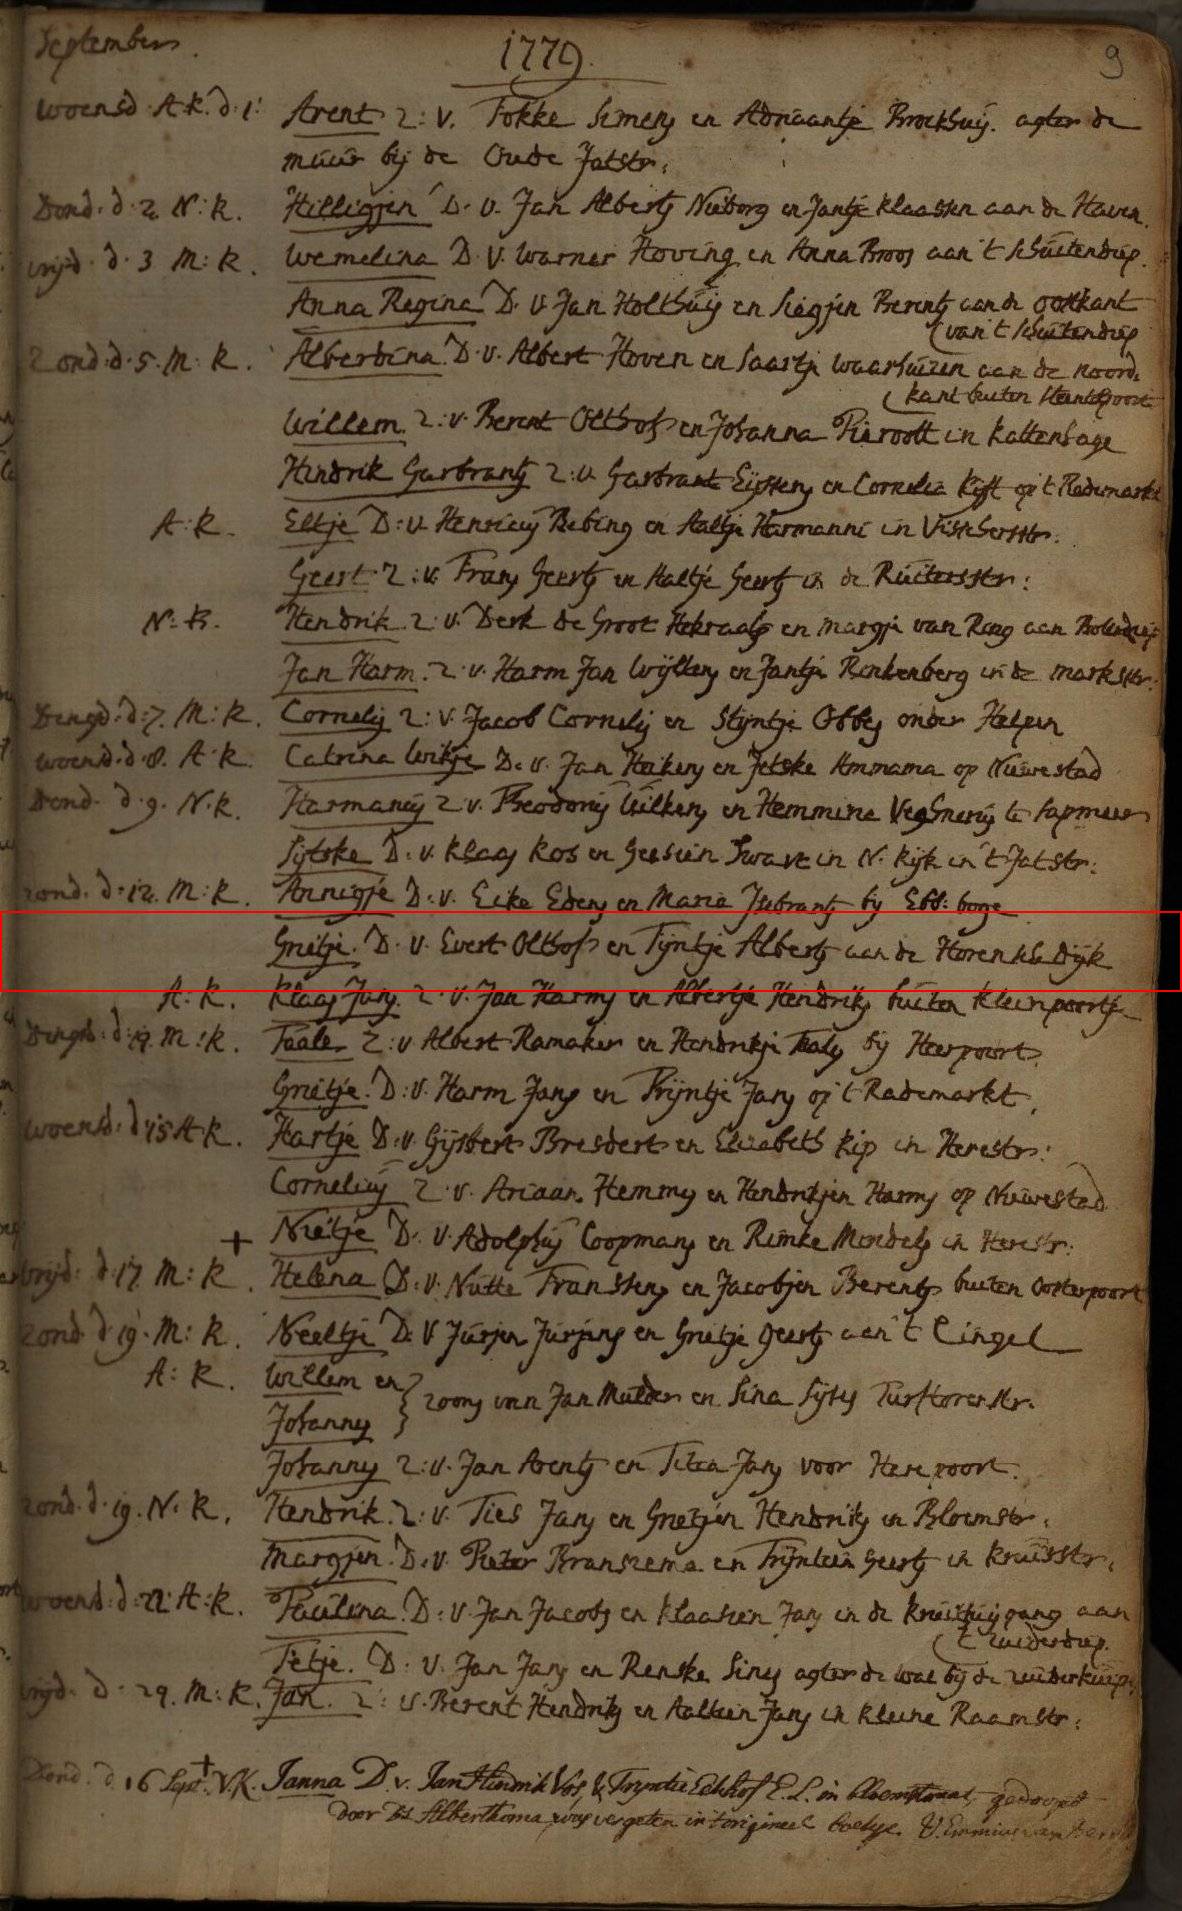 September.
1779.
9
woensd. A:K. d. 1: Arent Z: v. Fokke Simens en Adriaantje Brockhuis. agter de
muur bij de Oude Jatstr:
Dond. d. 2. N:K. Hilligjen D. v. Jan Alberts Nieborg en Jantje Klaassen aan de Haven.
vrijd. d. 3 M:K. Wemelina D. v. Warner Hoving en Anna Broos aan 't Schuitendiep.
Anna Regina D. v. Jan Holthuis en Siegjen Berents aan de oostkant
van 't Schuitendiep
Zond. d. 5. M:K. Alberdina D. v. Albert Hoven en Saartje Waarhuizen aan de noord.
kant buiten Steentilpoort
Willem. Z: v. Berent Olthof en Johanna Pieroott in Kattenhage
Hindrik Garbrants Z: v. Garbrant Eijssens en Cornelia Kijft op 't Rademarkt
A:K. Eltje D: v. Henricus Bebing en Aaltje Harmanni in Visscherstr:
Geert Z: v. Frans Geerts en Aaltje Geerts in de Ruiterstr:
N:K. Hendrik Z: v. Derk de Groot en Margje van Ring aan
Jan Harm. Z. v. Harm Jan Wijllens en Jantje Renkenberg in de Markstr:
Dingsd. d. 7. M:K. Cornelis Z: v. Jacob Cornelis en Stijntje Obbes onder Helpen
woensd. d. 8. A:K. Catrina Wikje D. v. Jan Heikens en Jetske Ammama op Nieuwestad
Dond. d. 9. N.K. Harmanus Z v. Theodorus Wilkens en Hemmina te Sapmeer
Sijtske D. v. Klaas Kos en Geesien Swart in N. Kijk in 't Jatstr:
zond. d. 12. M:K. Annigje D. v. Eike Edens en Maria Isebrants bij Ebb: boge
Grietje. D. v. Evert Olthof en Tijntje Alberts aan de Horensche Dijk
A:K. Klaas Jans. Z. v. Jan Harms en Albertje Hendriks buiten Kleinpoortje
Dingsd. d. 14. M:K. Taale Z: v Albert Ramaker en Hendrikje Taales bij Heerpoort.
Grietje. D: v. Harm Jans en Trijntje Jans op 't Rademarkt.
woensd. d. 15 A:K. Hartje D: v. Gijsbert Bresdert en Elizabeth Kip in Herestr:
Cornelius Z. v. Ariaan Hemmes en Hendrikjen Harms op Nieuwestad
+ Nietje D. v. Adolphus Coopmans en Rimke Mendels in Herestr:
vrijd: d. 17. M:K. Helena D: v. Nutte Franssens en Jacobjen Berents buiten Oosterpoort
zond. d. 19. M:K. Neeltje D. v Jurjen Jurjens en Grietje Geerts aan 't Cingel
A:K. Willem en
Johannes } zoons van Jan Mulder en Sina Sijtes Turftorenstr.
Johannes Z: v. Jan Arents en Titia Jans voor Herepoort.
zond. d. 19. N.K. Hendrik. Z: v. Ties Jans en Grietjen Hendriks in Bloemstr:
Margjen. D. v. Pieter Bransema en Trijntien Geerts in Kruisstr:
woensd: d: 22. A:K. Paulina. D: v. Jan Jacobs en Klaasien Jans in de gang aan
't Zuiderdiep.
Tetje. D: v. Jan Jans en Renske Sines agter de wal bij de zuiderkuipe
vrijd. d. 29. M:K. Jan. Z: v. Berent Hendriks en Aaltien Jans in kleine Raamstr:
Dond. d. 16 Sept. + N.K. Janna D. v. Jan Hindrik Vos, & Tryntie Eekhof E.L. in bloemstraat, gedoopt
door Ds Alberthoma was vergeten in 't origineel boekje.